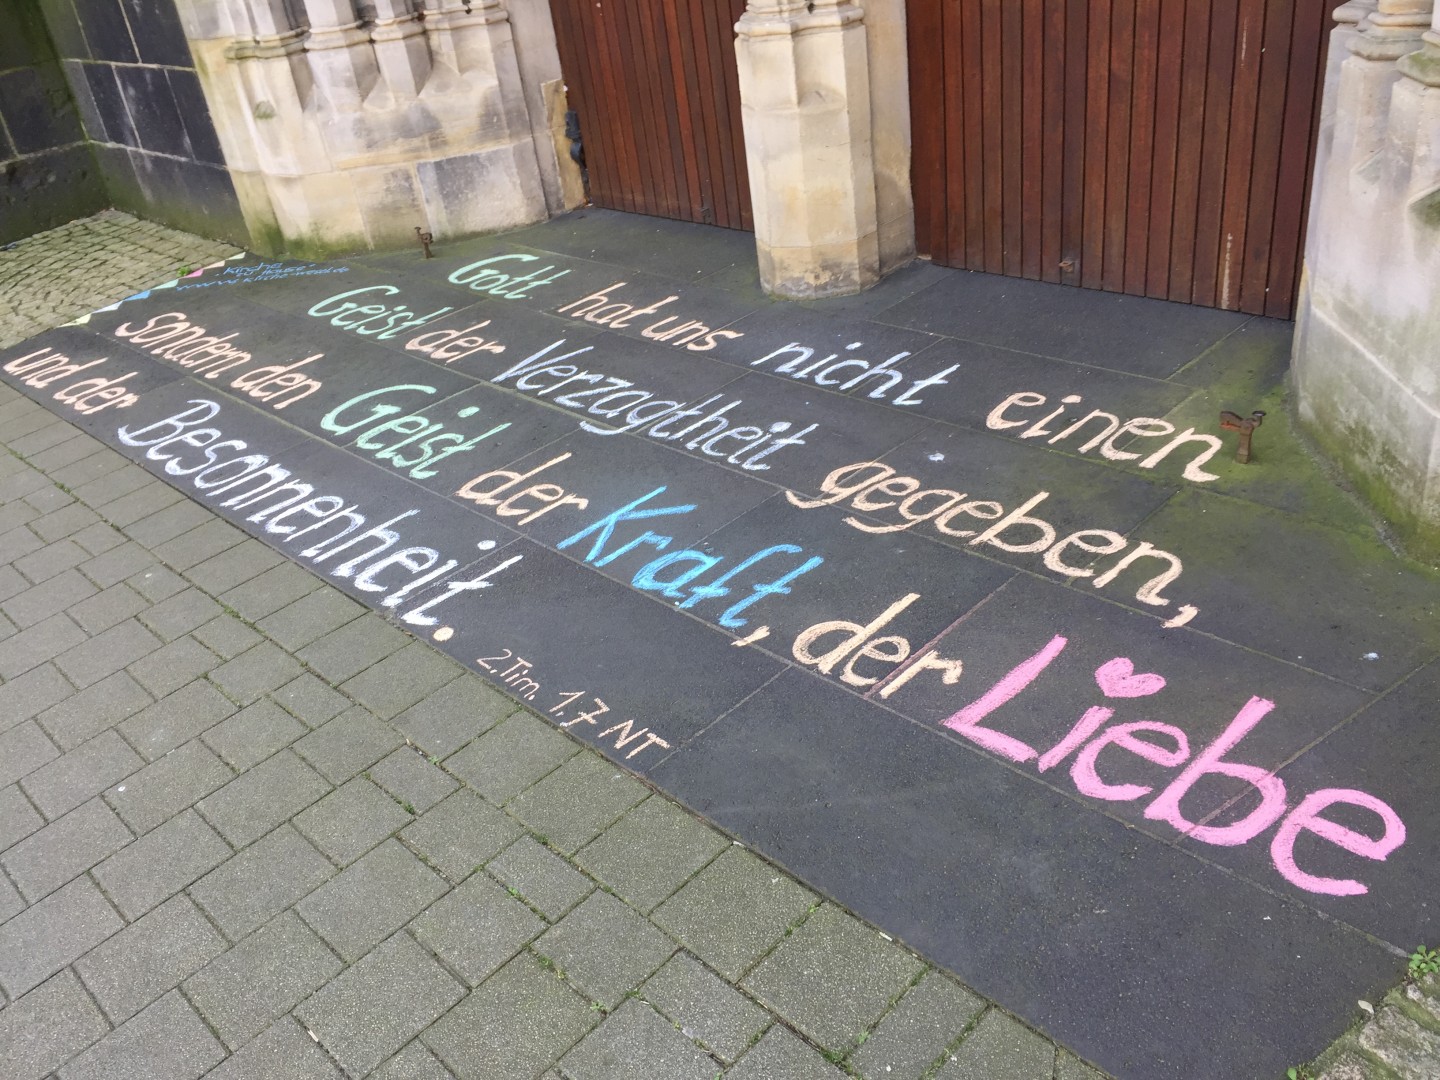 Gott hat uns nicht einen
Geist der Verzagtheit gegeben,
sondern den Geist der Kraft, der Liebe
und der Besonnenheit.
2.Tim. 1,7 NT
Kirche